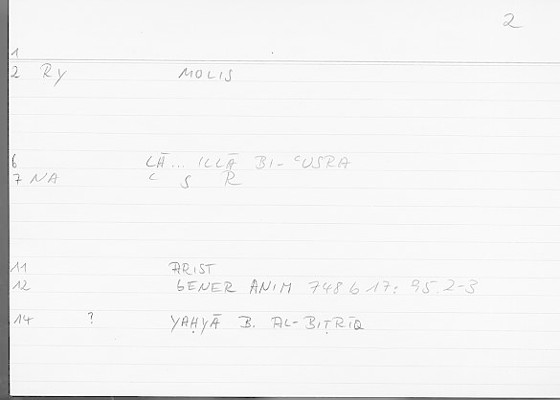 2
1
2 Ry MOLIS
6 LĀ... ILLĀ BI-ʿUSRA
7 NA ʿ S R
11 ARIST
12 GENER ANIM 748 b 17: 95.2-3
14 ? YAḤYĀ B. AL-BIṬRĪQ